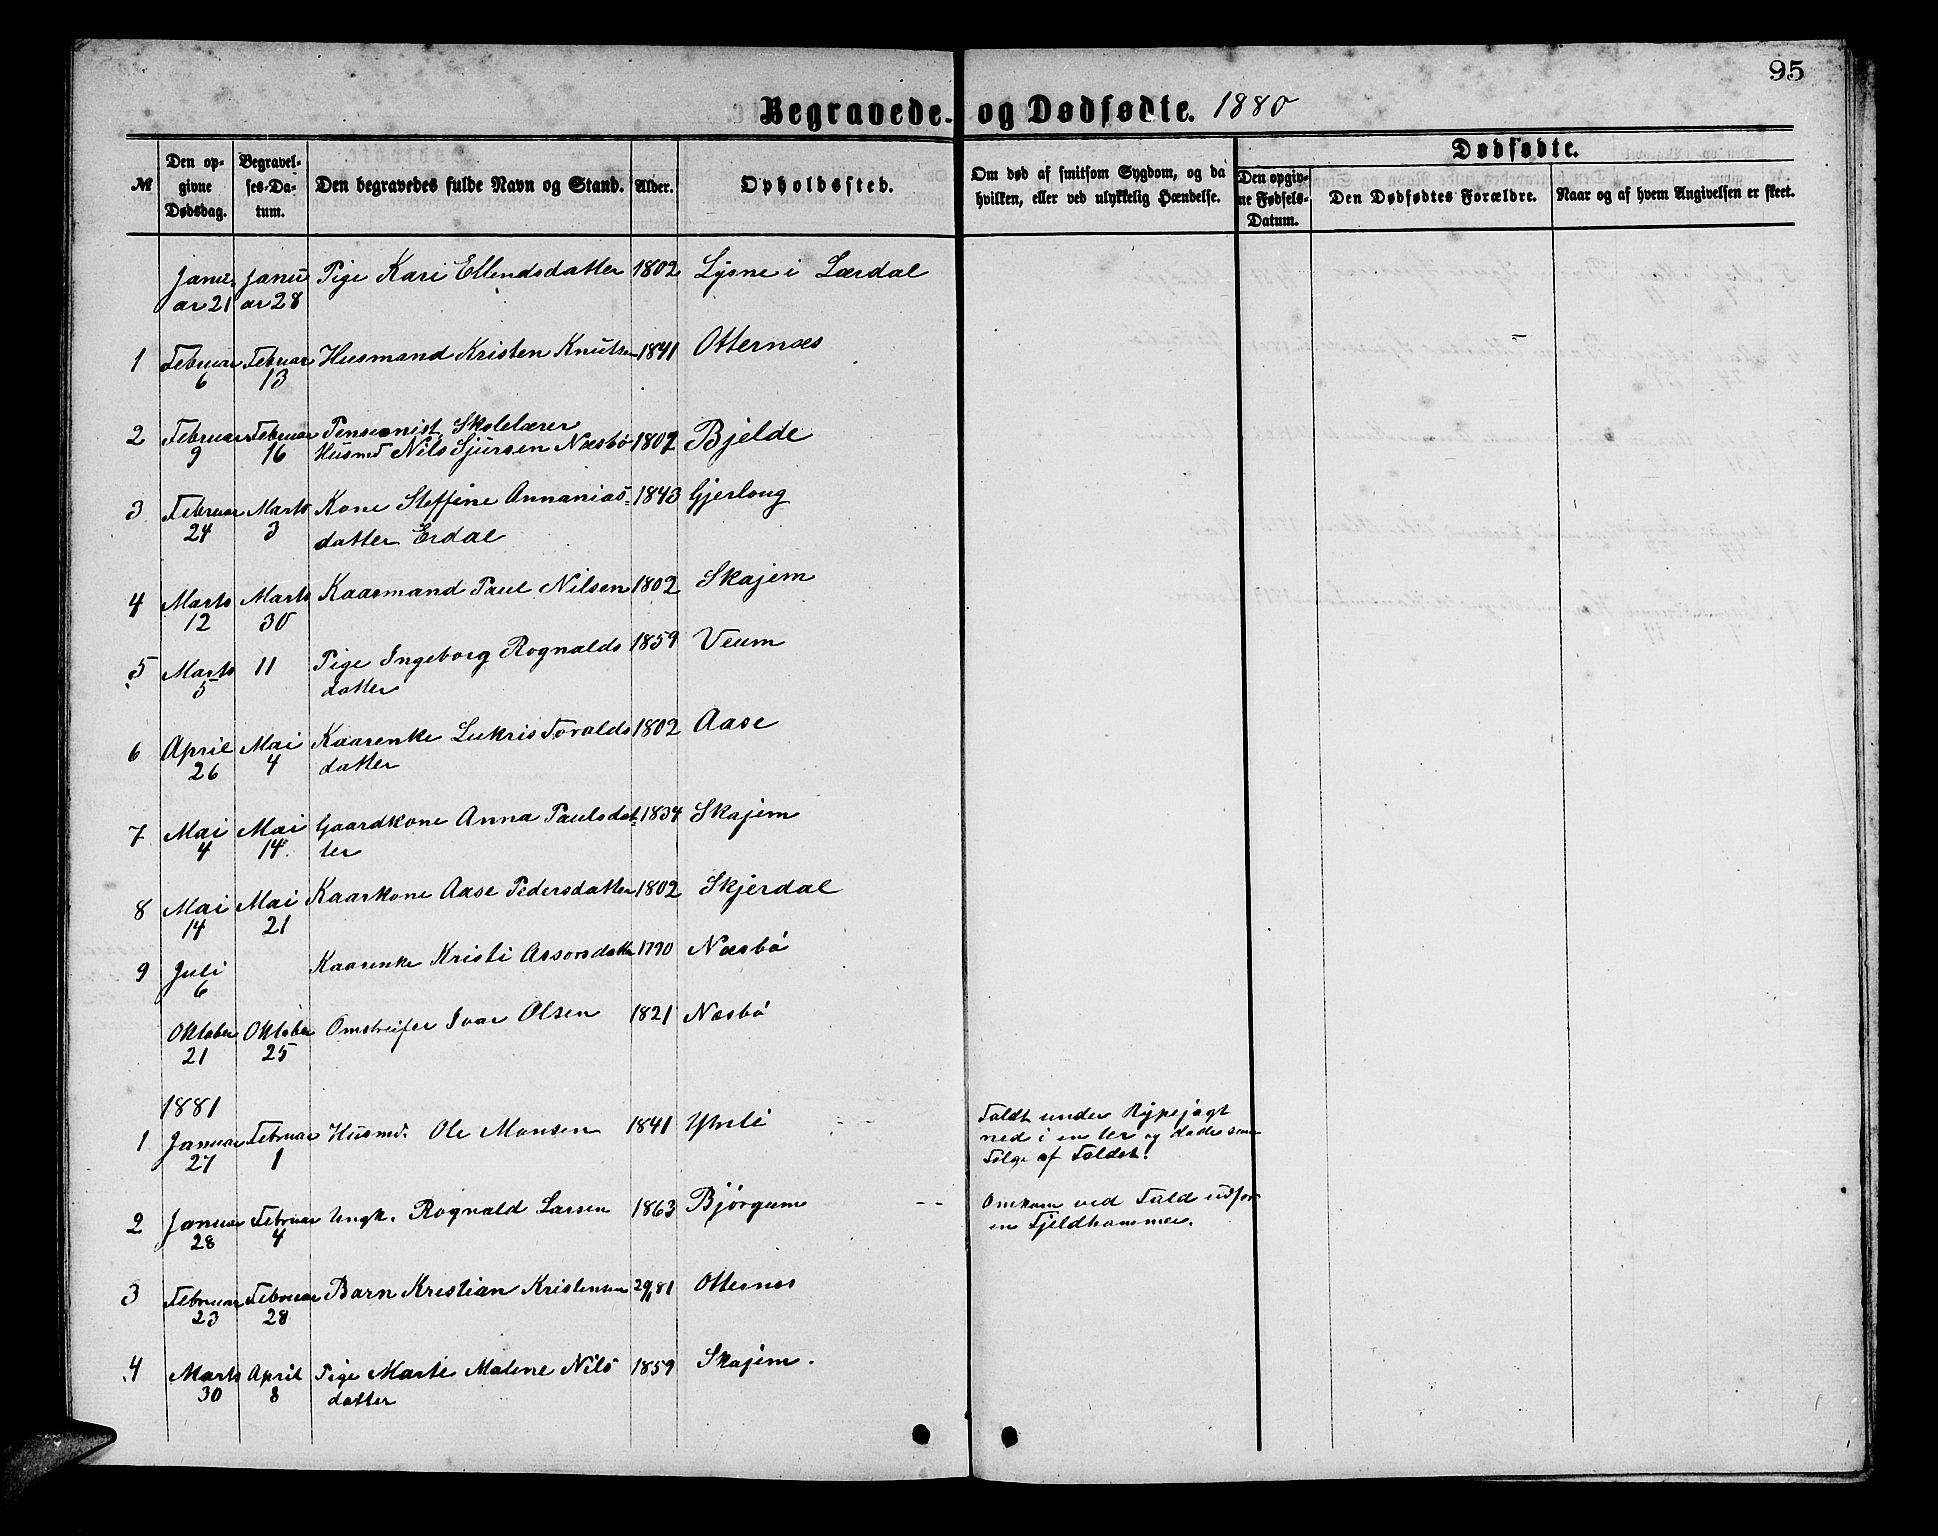 95
Begravede og Dødfødte. 1880
№
Den opgivne Dødsdag.
Begravelses-Datum.
Den begravedes fulde Navn og Stand.
Alder.
Opholdssted.
Om død af smitsom Sygdom, og da hvilken, eller ved ulykkelig Hændelse.
Dødfødte.
Den opgivne Fødsels-Datum.
Den Dødfødtes Forældre.
Naar og af hvem Angivelsen er skeet.
Januar 21 Januar 28 Pige Kari Ellendsdatter 1802 Lysne i Lærdal
1 Februar 6 Februar 13 Husmand Kristen Knutsen 1841 Otternæs
2 Februar 9 Februar 16 Pensionist, Skolelærer
Husmd Nils Sjursen Næsbø 1802 Bjelde
3 Februar 24 Marts 3 Kone Steffine Annanias- 1843 Gjerløug
datter Erdal
4 Marts 12 Marts 30 Kaarmand Paul Nilsen 1802 Skajem
5 Marts 5 11 Pige Ingeborg Rognalds 1859 Veum
datter
6 April 26 Mai 4 Kaarenke Lukris Toralds 1802 Aase
datter
7 Mai 4 Mai 14 Gaardkone Anna Paulsdat- 1834 Skajem
ter
8 Mai 14 Mai 21 Kaarkone Aase Pedersdatter 1802 Skjerdal
9 Juli 6 Kaarenke Kristi Assorsdatter 1790 Næsbø
Oktober 21 Oktober 25 Omstreifer Ivar Olsen 1821 Næsbø
1881
1 Januar 27 Februar 1 Husmd. Ole Monsen 1841 Ytreli Faldt under Rypejagt
ned i en Ur og døde som
Følge af Faldet!
2 Januar 28 Februar 4 Ungk. Rognald Larsen 1863 Bjørgum Omkom ved Fald udfor
en Fjeldhammer.
3 Februar 23 Februar 28 Barn Kristian Kristensen 29/1 81 Otternes
4 Marts 30 April 8 Pige Marte Malene Nils 1859 Skajem.
datter